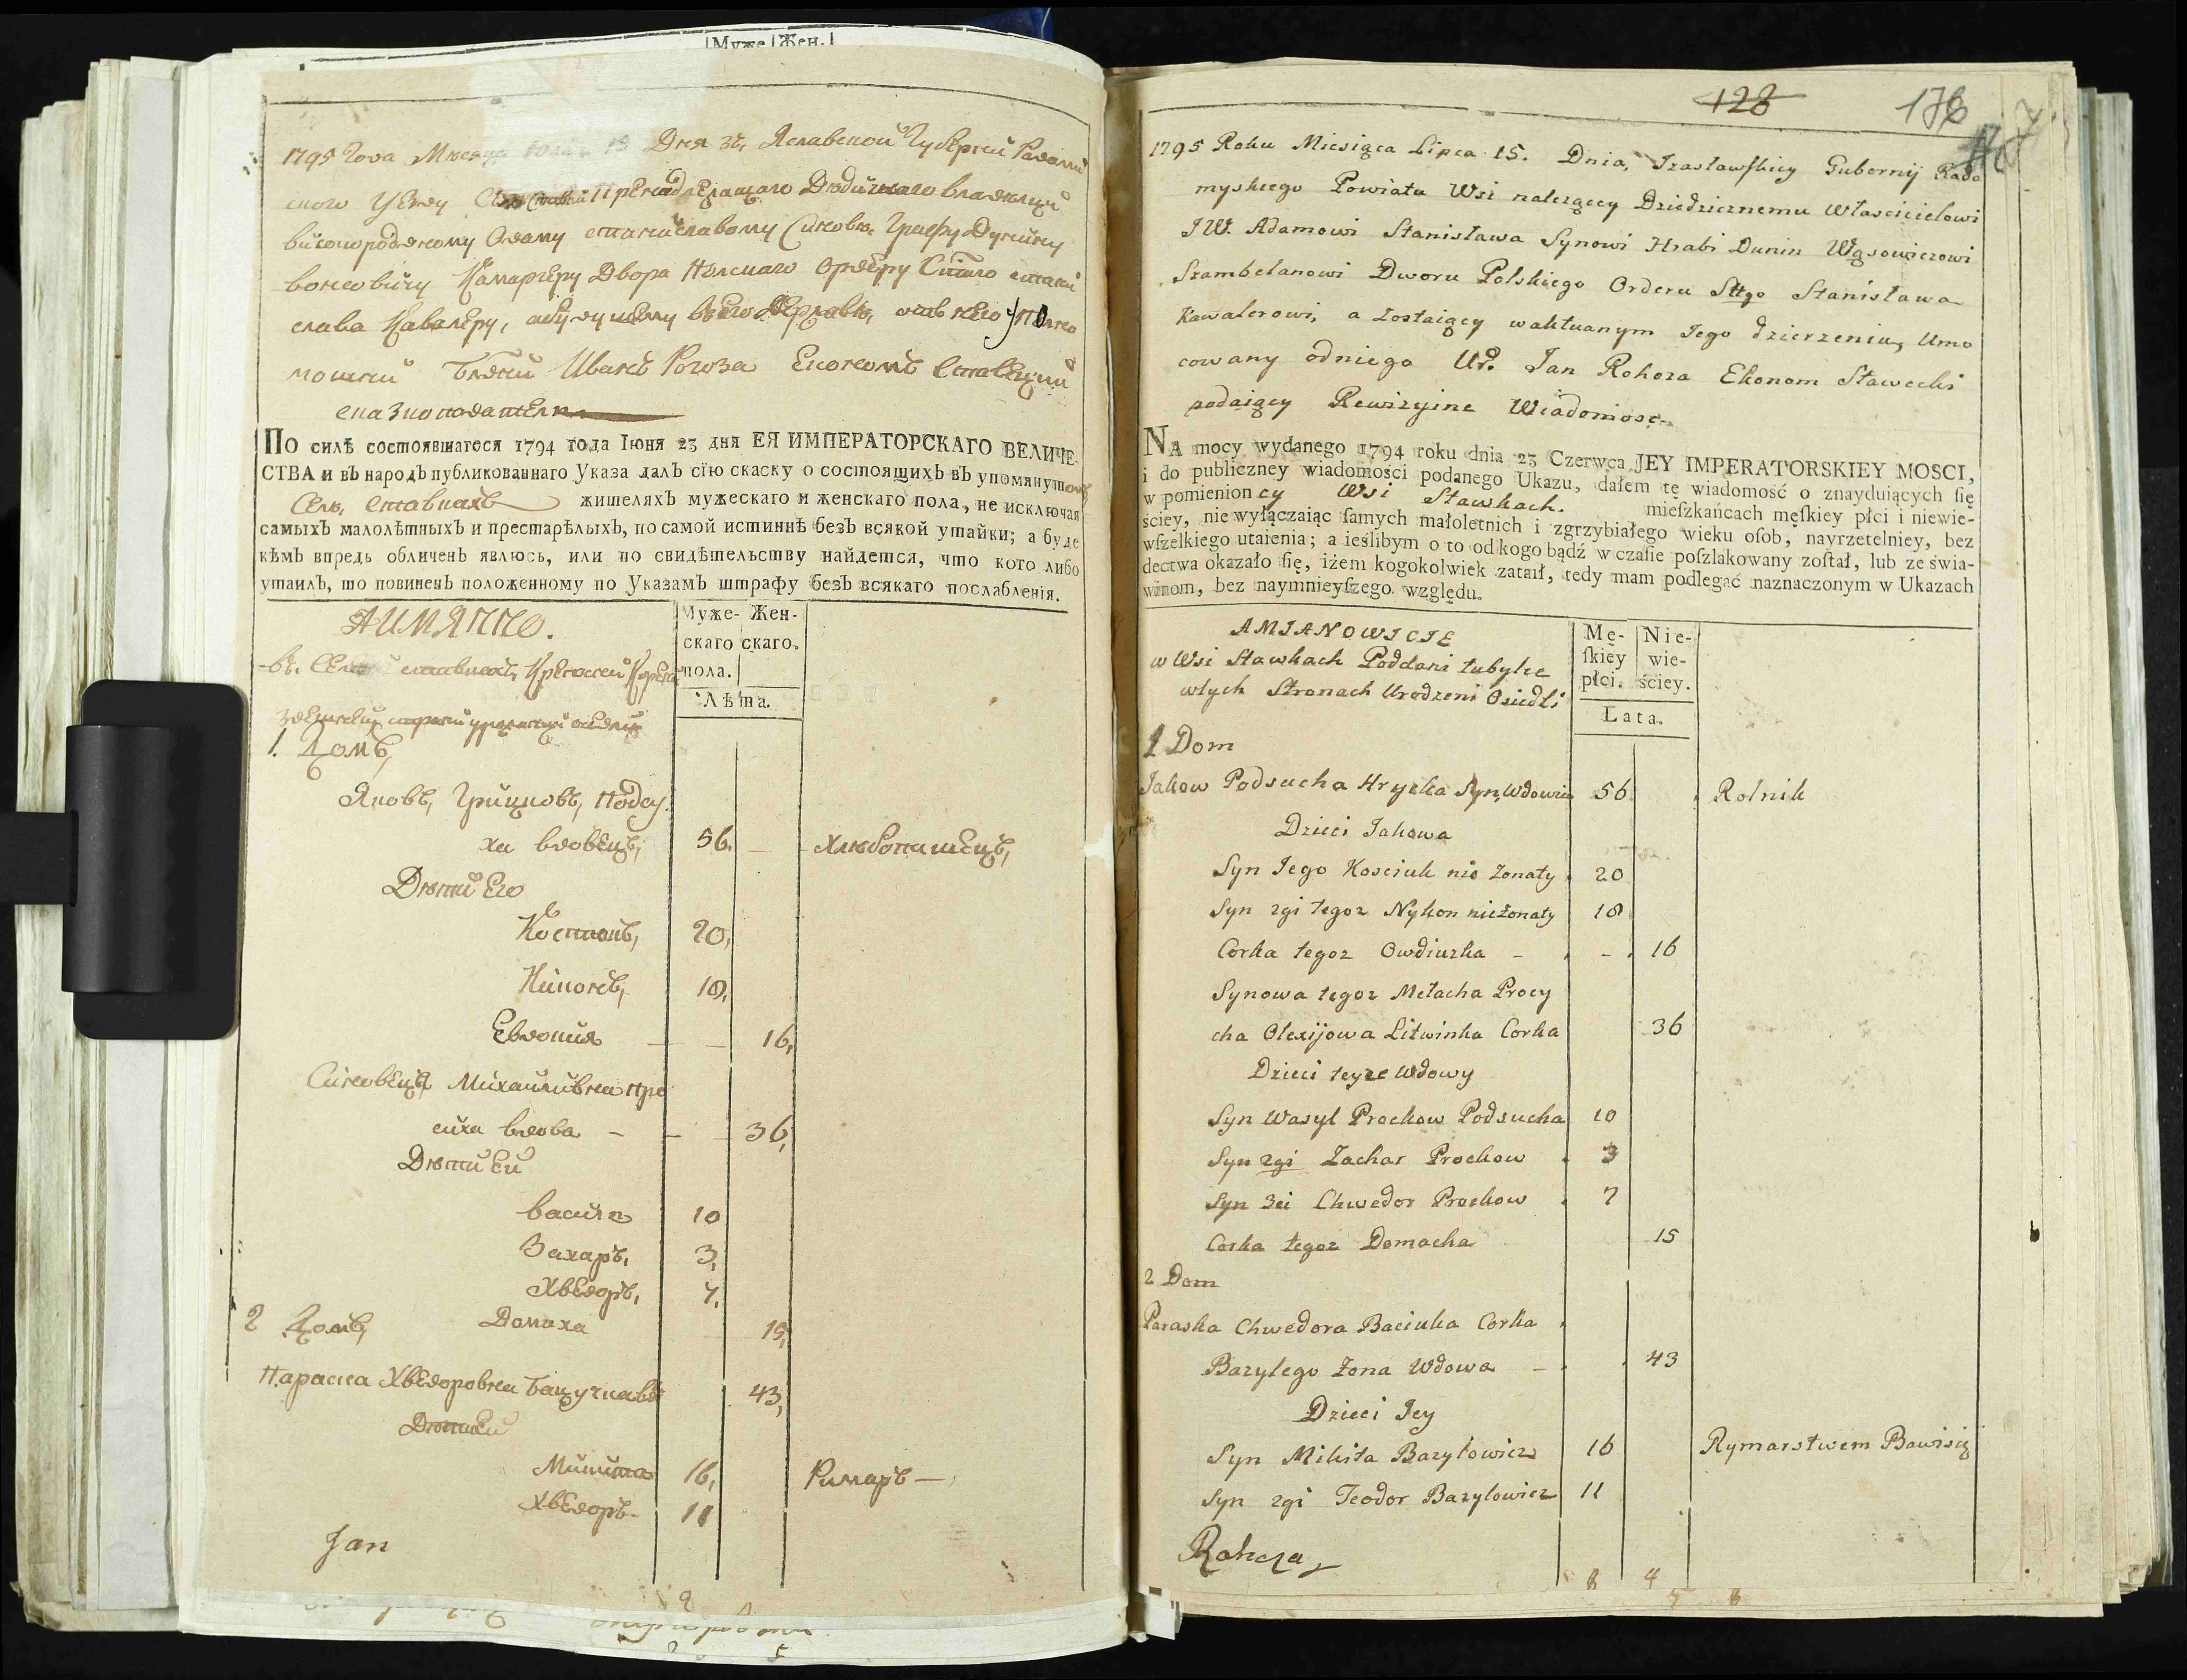 Муже Жен.
1795 Года Месяца Июля 15 Дня Зѣ, Яславской Губернии Радоми
слого Уезду Принадлежащаго Дедичнаго владелци
високородному Адаму станиславовому Синовѣ Графу Дунину
Вонсовичу Камаргеру Двора Полскаго Ордеру Стаго стани
слава Кавалеру, от него упо
мощний Иванъ Рогоза Економъ Ставецкий
сказкоподатель
По силѣ состоявшагося 1794 года Iюня 23 дня ЕЯ ИМПЕРАТОРСКАГО ВЕЛИЧЕ-
СТВА и въ народъ публикованнаго Указа далъ сiю скаску о состоящихъ въ упомянутомъ
Селѣ Ставкахъ жителяхъ мужескаго и женскаго пола, не исключая
самыхъ малолѣтныхъ и престарѣлыхъ, по самой истиннѣ безъ всякой утайки; а буде
кѣмъ впредь обличенъ явлюсь, или по свидѣтельству найдется, что кого либо
утаилъ, то повиненъ положенному по Указамъ штрафу безъ всякаго послабленiя.
АИМЯННО.
Муже- Жен-
скаго скаго.
пола.
Лѣта.
въ Селе ставкахъ
1. Домъ,
Яковъ, Грицковъ, Подсу
ха вдовецъ, 56. Хлебопашецъ,
Дети Его
Костюкъ, 20,
Никонъ, 18,
Евдокия 16,
Синовеця Михайливна Про
сиха вдова 36,
Дети Ей
Василь 10
Захаръ, 3,
Хведоръ, 7,
Домаха 15,
2 Домъ,
Параска Хведоровна Бацучка вдо 43,
Дети Ей
Микита 16, Римаръ
Хведоръ 11
Jan
128
176
1795 Roku Miesiąca Lipca 15. Dnia, Izasławskiey Gubernij Rado
myskiego Powiatu Wsi nalezącey Dziedzicznemu Włascicielowi
JW. Adamowi Stanisława Synowi Hrabi Dunin Wąsowiczowi
Szambelanowi Dworu Polskiego Orderu Sttgo Stanisława
Kawalerowi, a zostaiącey waktuanym Jego dzierzeniu, Umo
cowany odniego Ur. Jan Rohoza Ekonom Stawecki
podaiący Rewizyine Wiadomosc.
NA mocy wydanego 1794 roku dnia 23 Czerwca JEY IMPERATORSKIEY MOSCI,
i do publiczney wiadomości podanego Ukazu, dałem tę wiadomość o znayduiących ſię
w pomienioncy Wsi Stawkach. mieſzkańcach męſkiey płci i niewie-
ściey, nie wyłączaiąc ſamych małoletnich i zgrzybiałego wieku oſob, nayrzetelniey, bez
wſzelkiego utaienia; a ieślibym o to od kogo bądź w czaſie poſzlakowany zoſtał, lub ze świa-
dectwa okazało ſię, iżem kogokolwiek zataił, tedy mam podlegać naznaczonym w Ukazach
winom, bez naymnieyſzego względu.
AMIANOWICIE
w Wsi Stawkach Poddani tubylce
wtych Stronach Urodzeni Osiedli
Mę- Nie-
ſkiey wie-
płci. ściey.
Lata.
1 Dom
Jakow Podsucha Hrycka Syn, Wdowiec 56 Rolnik
Dzieci Jakowa
Syn Jego Kosciuk nie zonaty 20
Syn 2gi tegoz Nykon nieżonaty 18
Corka tegoz Owdiuzka 16
Synowa tegoz Metacha Procy
cha Olexijowa Litwinka Corka 36
Dzieci teyze Wdowy
Syn Wasyl Prockow Podsucha 10
Syn 2gi Zachar Prockow 3
Syn 3ci Chwedor Prockow 7
Corka tegoz Domacha 15
2 Dom
Paraska Chwedora Baciuka Corka
Bazylego Zona Wdowa 43
Dzieci Jey
Syn Mikita Bazyłowicz 16 Rymarstwem Bawisię
Syn 2gi Teodor Bazylowicz 11
Rohoza
8 4